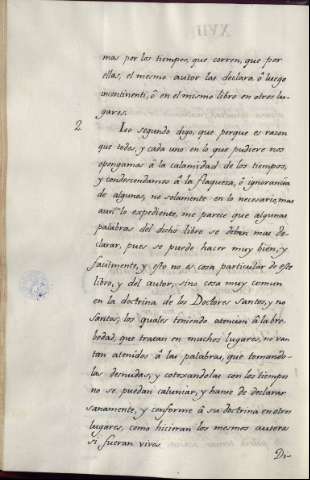 mas por los tiempos, que corren, que por
ellas, el mesmo autor las declara ô luego
incontinenti, ô en el mismo libro en otros lu-
gares.
2 Lo segundo digo, que porque es razon
que todos, y cada uno en lo que pudiere nos
opongamos â la calamidad de los tiempos,
y condescendamos â la flaqueza, ô ignorancia
de algunos, no solamente en lo necesario, mas
aun lo expediente, me parece que algunas
palabras del dicho libro se deban mas de-
clarar, pues se puede hacer muy bien, y
facilmente, y esto no es cosa particular de este
libro, y del autor, sino cosa muy comun
en la doctrina de los Doctores santos, y no
santos, los quales teniendo atencion â la bre-
bedad, que tratan en muchos lugares, no van
tan atenidos â las palabras, que tomando-
las desnudas, y cotexandolas con los tiempos
no se puedan caluniar, y hanse de declarar
sanamente, y conforme â su doctrina en otros
lugares, como hicieran los mesmos autores
si fueran vivos.
Di-